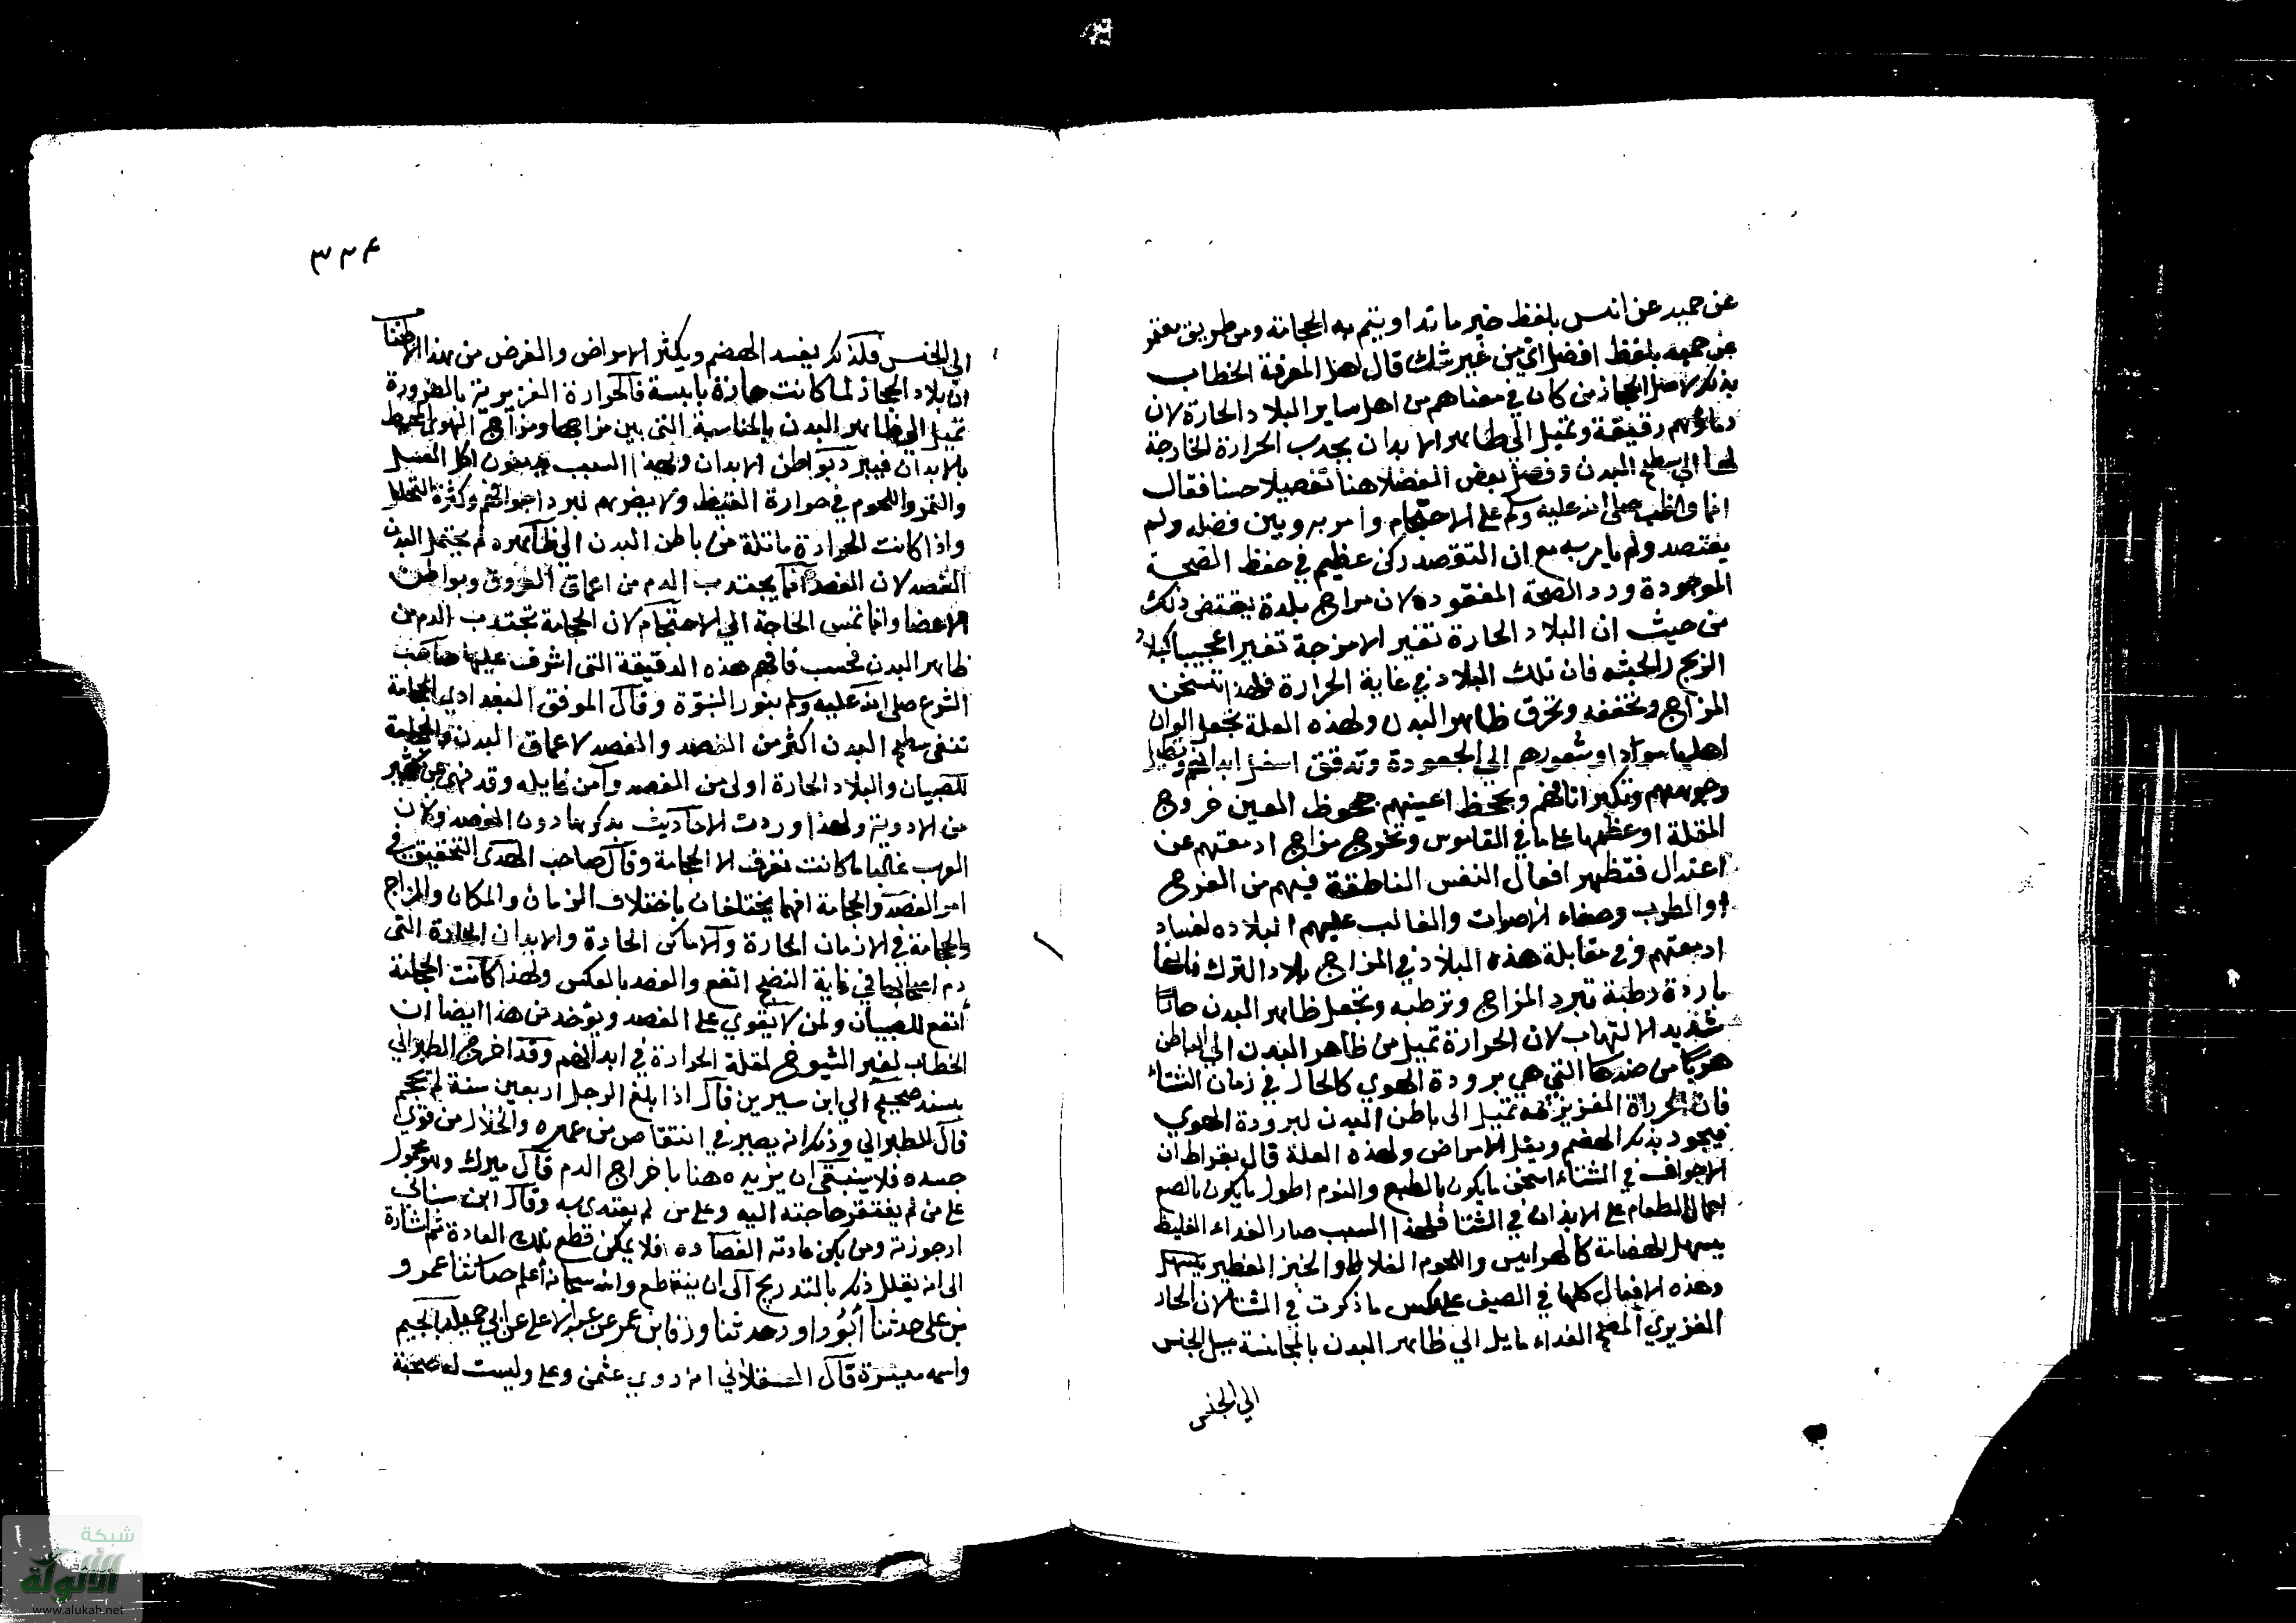 عن حميد عن انس بلفظ خير ما تداويتم به الحجامة ومن طريق معتمر
عن حميد بلفظ افضل اي من غير شك قال اهل المعرفة الخطاب
بذلك لاهل الحجاز من كان في معناهم من اهل ساير البلاد الحارة لان
دماؤهم رقيقة وتميل الي ظاهر الابدان بجذب الحرارة الخارجة
لها الي سطح البدن وفصل بعض الفضلا هنا تفصيلا حسنا فقال
انما واظب صلى الله عليه وسلم على الاحتجام وامر به وبين فضله ولم
يفتصد ولم يامر به مع ان التفصد ركن عظيم في حفظ الصحة
الموجودة ورد الصحة المفقودة لان مزاج بلدة يقتضي ذلك
من حيث ان البلاد الحارة تغير الامزجة تغيرا عجيبا كبلاد
الزنج والحبشه فان تلك البلاد في غاية الحرارة فلهذا تسخن
المزاج وتجففه وتحرق ظاهر البدن ولهذه العلة تجعل الوان
اهلها سوادا وشعورهم الي الجعودة وتدقق اسفل ابدانهم وتطيل
وجوههم وتكبر انافهم وتجحظ اعينهم جحوظ العين خروج
المقلة او عظمها على ما في القاموس وتخرج مزاج ادمغتهم عن
اعتدال فتظهر افعال النفس الناطقة فيهم من الفرح
والطرب وصفاء الاصوات والغالب عليهم البلاده لفساد
ادمغتهم وفي مقابلة هذه البلاد في المزاج بلاد الترك فانها
باردة رطبة تبرد المزاج وترطبه وتجعل ظاهر البدن حارا
شديد الالتهاب لان الحرارة تميل من ظاهر البدن الي الباطن
هربا من ضدها التي هي برودة الهوي كالحال في زمان الشتاء
فان الحرارة الغزيزية تميل الى باطن البدن لبرودة الهوي
فيجود بذلك الهضم ويقل الامراض ولهذه العلة قال بقراط ان
الاجواف في الشتاء اسخن ما يكون بالطبع والنوم اطول ما يكون
الطعام على الابدان في الشتا فلهذا السبب صار الغداء الغليظ
يسهل انهضامه كالهرايس واللحوم الغلاظ والخبز الفطير
وهذه الافعال كلها في الصيف على عكس ما ذكرت في الشتا لان الحار
الغزيزي المصلح الغداء مايل الي ظاهر البدن بالمجانسة ميل الجنس
الي الجنس
٣٢٤
الي الجنس فلذلك يفسد الهضم ويكثر الامراض والغرض من هذا
ان بلاد الحجاز لما كانت حارة يابسة فالحرارة الغزيرية بالضرورة
تميل الي ظاهر البدن بالمناسبة التي بين مزاجها ومزاج الهوي المحيط
بالابدان فيبرد بواطن الابدان ولهذا السبب يدمنون اكل العسل
والتمر واللحوم في حرارة القيظ ولا يضرهم لبرد اجوافهم وكثرة التحلل
واذا كانت الحرارة مائلة من باطن البدن الي ظاهره لم يحتمل البدن
الفصد لان الفصد انما يجتذب الدم من اعماق العروق وبواطن
الاعضا وانما تمس الحاجة الي الاحتجام لان الحجامة تجتذب الدم من
ظاهر البدن فحسب فافهم هذه الدقيقة التي اشرف عليها صاحب
الشرع صلى الله عليه وسلم بنور النبوة وقال الموفق البغدادي الحجامة
تنقي سطح البدن اكثر من الفصد والفصد لاعماق البدن والحجامة
للصبيان والبلاد الحارة اولى من الفصد وآمن غايله وقد تغني عن كثير
من الادوية ولهذا وردت الاحاديث بذكرها دون الفصد ولان
العرب غالبا ما كانت تعرف الا الحجامة وقال صاحب الهدى التحقيق في
امر الفصد والحجامة انهما يختلفان باختلاف الزمان والمكان والمزاج
والحجامة في الازمان الحارة والاماكن الحارة والابدان الحارة التي
دم اصحابها في غاية النضج انفع والفصد بالعكس ولهذا كانت الحجامة
انفع للصبيان ولمن لا يقوي على الفصد ويؤخذ من هذا ايضا ان
الخطاب لغير الشيوخ لقلة الحرارة في ابدانهم وقد اخرج الطبراني
بسند صحيح الي ابن سيرين قال اذا بلغ الرجل اربعين سنة لم يحتجم
قال الطبراني وذلك انه يصير في انتقاص من عمره وانحلال من قوي
جسده فلا ينبغي ان يزيده هنا باخراج الدم قال ميرك وهو محمول
على من لم يفتقر حاجته اليه وعلى من لم يعتد به وقال ابن سينا في
ارجوزته ومن يكن عادته الفصاده فلا يمكن قطع تلك العادة ثم اشارة
الى انه يقلل ذلك بالتدريج الى ان ينقطع والله سبحانه أعلم حدثنا عمرو
بن على حدثنا ابو داود حدثنا ورقا بن عمر عن عبد الاعلى عن ابي جميلة بالجيم
واسمه ميسرة قال العسقلاني انه روي عثمن وعلى وليست له صحبة
شبكة
الألوكة
www.alukah.net